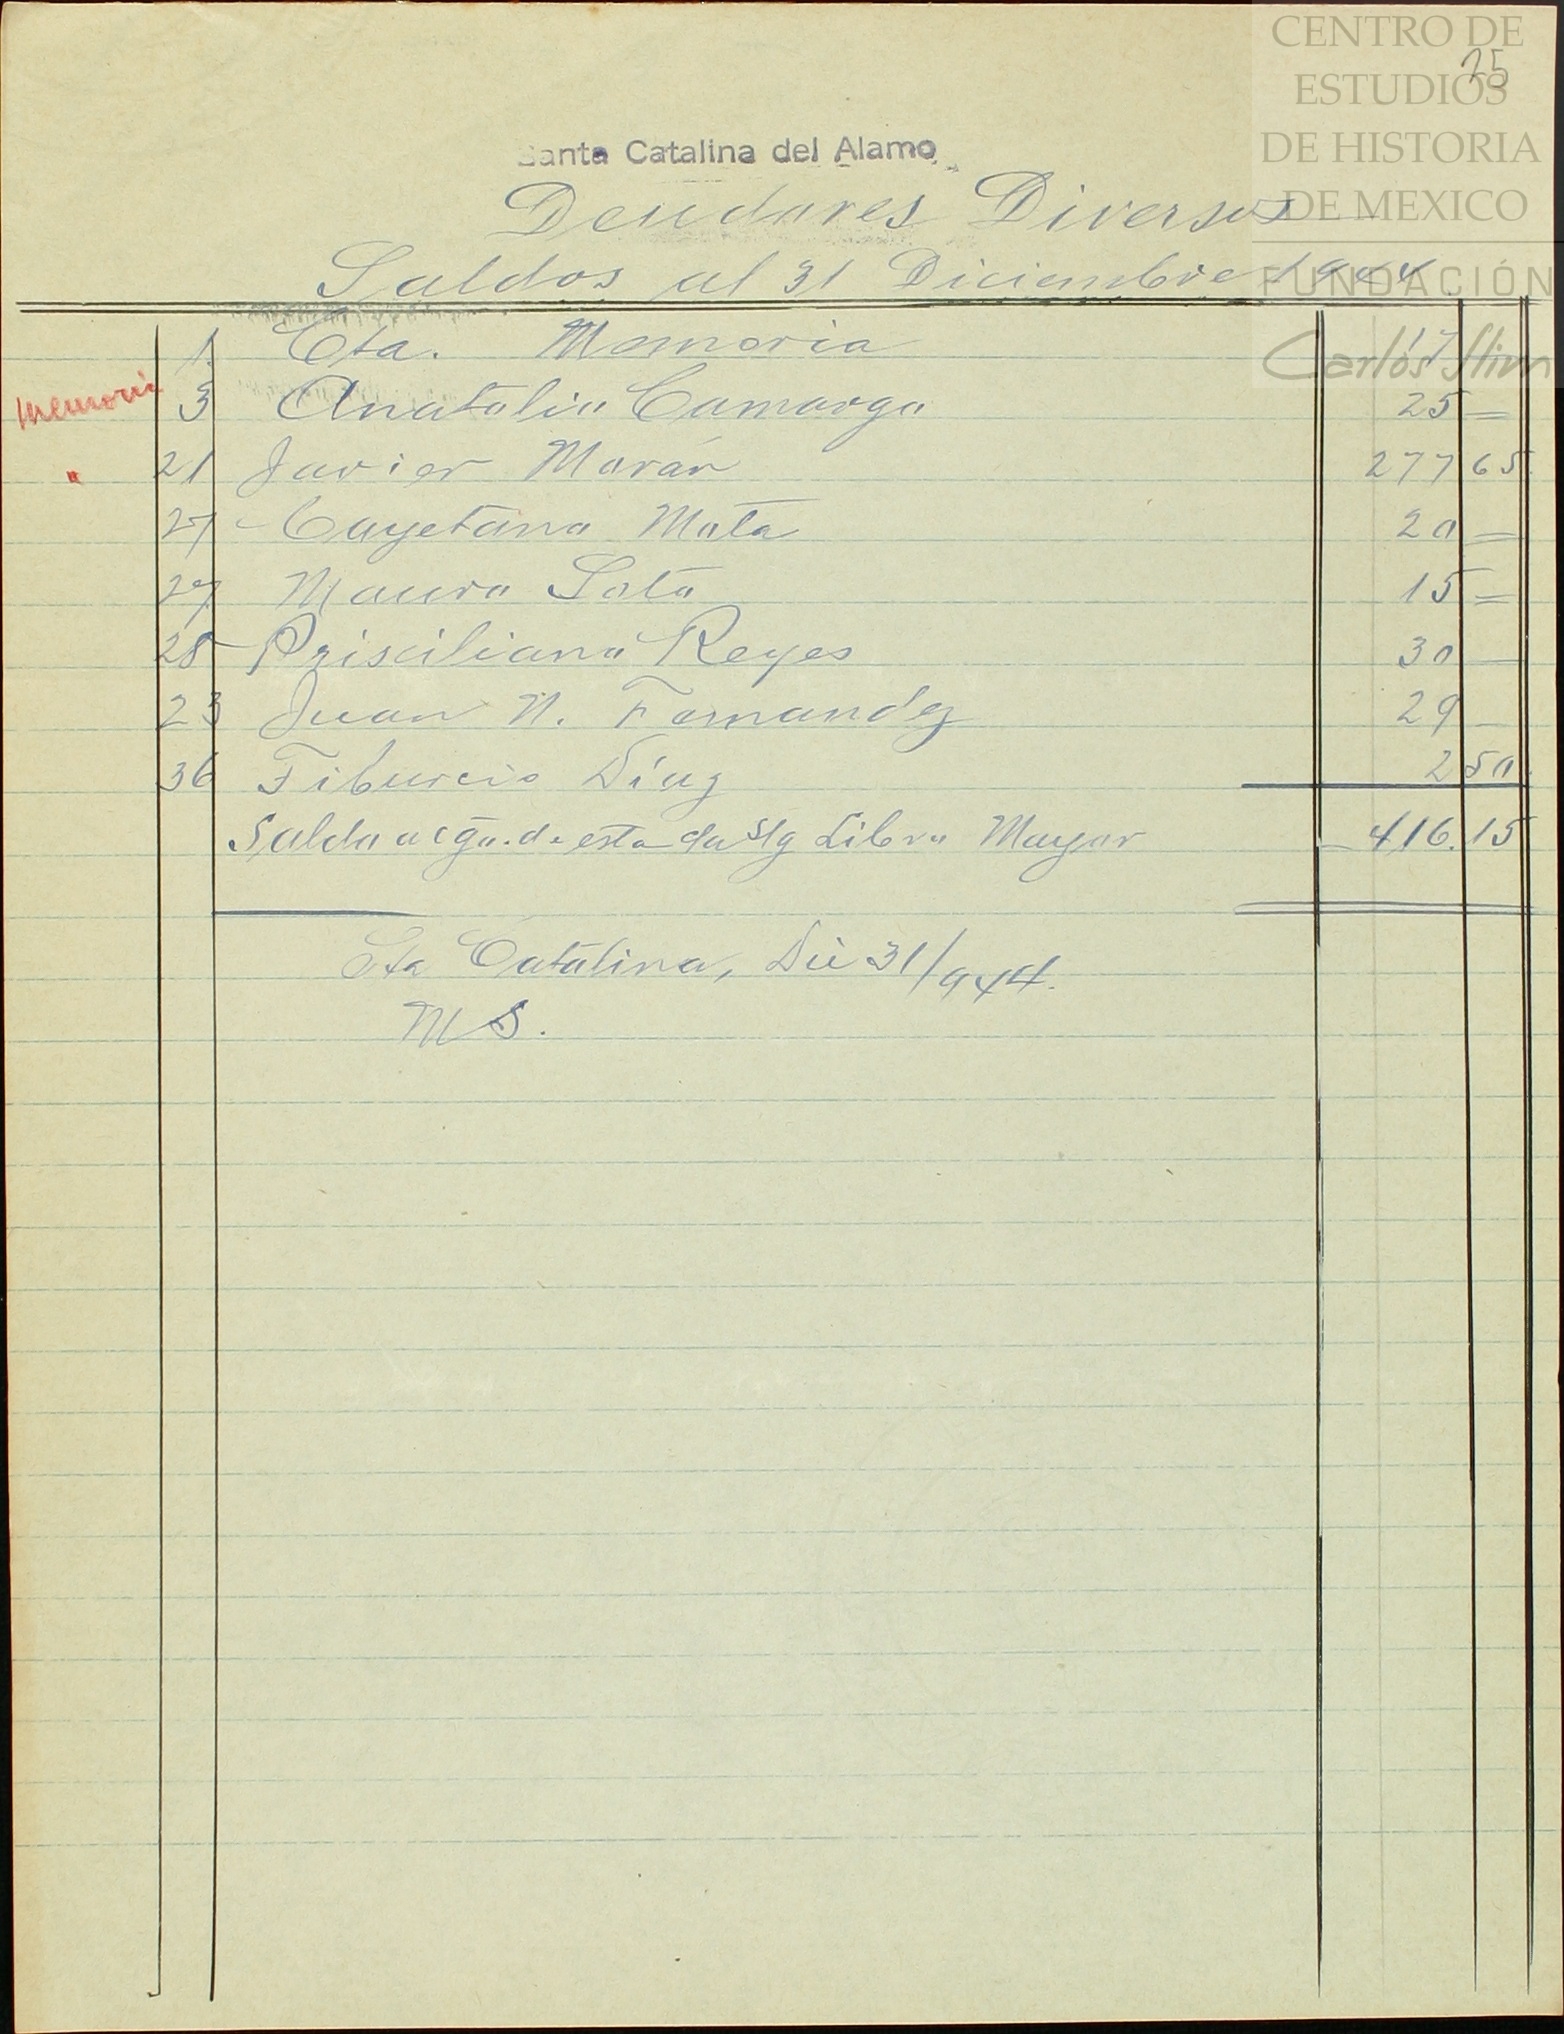 CENTRO DE
ESTUDIOS
DE HISTORIA
DE MEXICO
FUNDACIÓN
Carlos Slim
25
Santa Catalina del Alamo
Deudores Diversos
Saldos al 31 Diciembre 1944
1. Cta. Memoria 17
memoria 3 Anatolio Camargo 25 =
" 21 Javier Morán 277 65
27 Cayetano Mata 20 =
27 Mauro Soto 15 =
28 Prisciliano Reyes 30 —
23 Juan N. Fernandez 29 —
36 Tiburcio Díaz 2 50
Saldo a cgo. de esta Sg Libro Mayor 416.15
Sta Catalina, Dic 31/944.
M S.